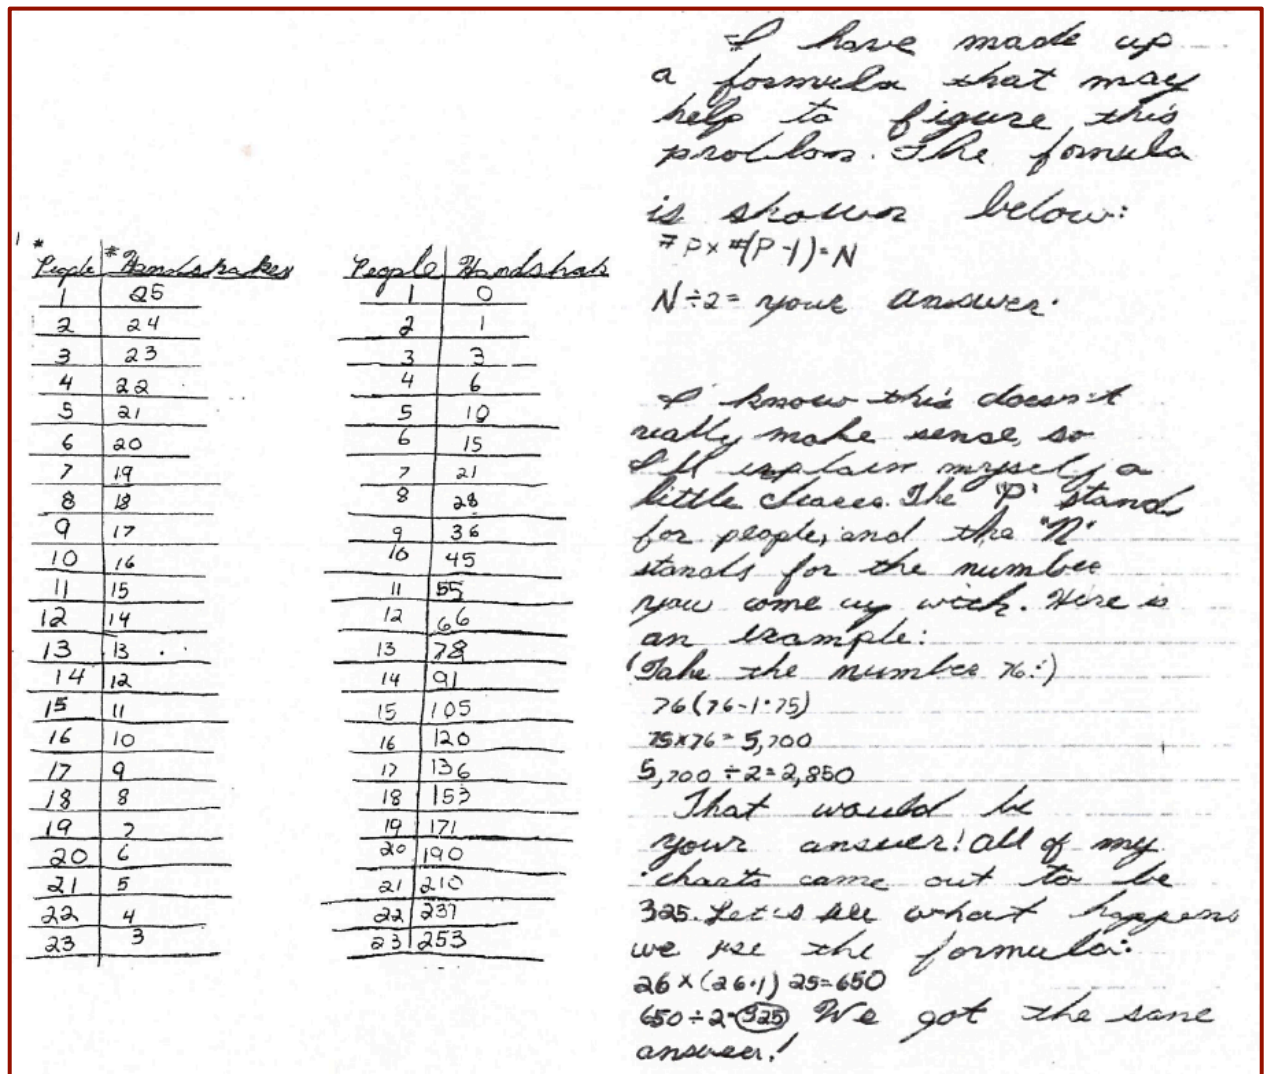 # People | # Handshakes
1 | 25
2 | 24
3 | 23
4 | 22
5 | 21
6 | 20
7 | 19
8 | 18
9 | 17
10 | 16
11 | 15
12 | 14
13 | 13
14 | 12
15 | 11
16 | 10
17 | 9
18 | 8
19 | 7
20 | 6
21 | 5
22 | 4
23 | 3
People | Handshak
1 | 0
2 | 1
3 | 3
4 | 6
5 | 10
6 | 15
7 | 21
8 | 28
9 | 36
10 | 45
11 | 55
12 | 66
13 | 78
14 | 91
15 | 105
16 | 120
17 | 136
18 | 153
19 | 171
20 | 190
21 | 210
22 | 231
23 | 253
I have made up
a formula that may
help to figure this
problem. The formula
is shown below:
# P x #(P-1)=N
N÷2= your answer.
I know this doesn't
really make sense, so
I'll explain myself a
little clearer. The "P" stand
for people, and the "N"
stands for the number
you come up with. Here is
an example:
(Take the number 76:)
76(76-1=75)
75x76=5,700
5,700÷2=2,850
That would be
your answer! All of my
charts came out to be
325. Let's see what happens
we use the formula:
26x(26-1) 25=650
650÷2=325 We got the same
answer!